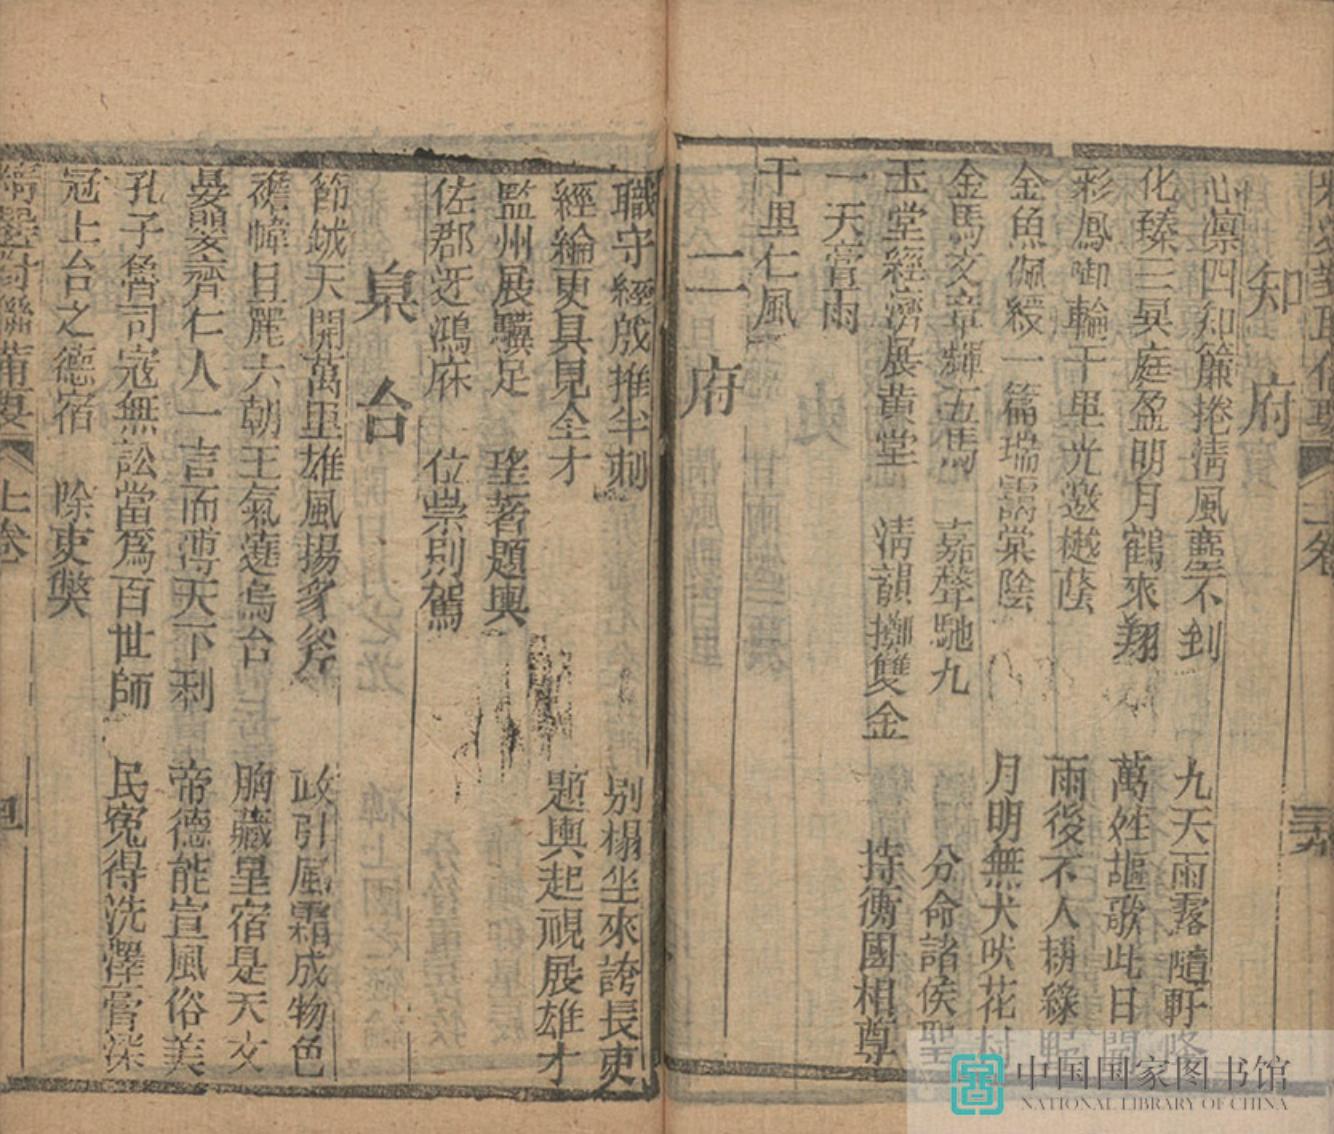 上卷
知府
心凛四知簾捲清風塵不到 九天雨露隨軒降
化臻三異庭盈明月鶴來翔 萬姓謳歌此日聞
彩鳳啣輪千里光邀樾蔭 雨後不人耕綠
金魚佩綬一篇瑞靄棠陰 月明無犬吠花村
金馬文章輝五馬 嘉聲馳九 分命諸侯聖
玉堂經濟展黄堂 清韻擲雙金 持衡國相尊
一天膏雨
千里仁風
二府
職守經啟推半刺 別榻坐來誇長吏
經綸更具見全才 題輿起視展雄才
監州展驥足 望著題輿
佐郡迓鴻庥 位崇別駕
臬台
節鉞天開萬里雄風揚豸斧 政引風霜成物色
襜幃日麗六朝王氣遶烏台 胸藏星宿是天文
晏嬰齊仁人一言而溥天下利 帝德能宣風俗美
孔子魯司寇無訟當爲百世師 民寃得洗澤膏深
冠上台之德宿 除吏獘
上卷
中国国家图书馆
NATIONAL LIBRARY OF CHINA